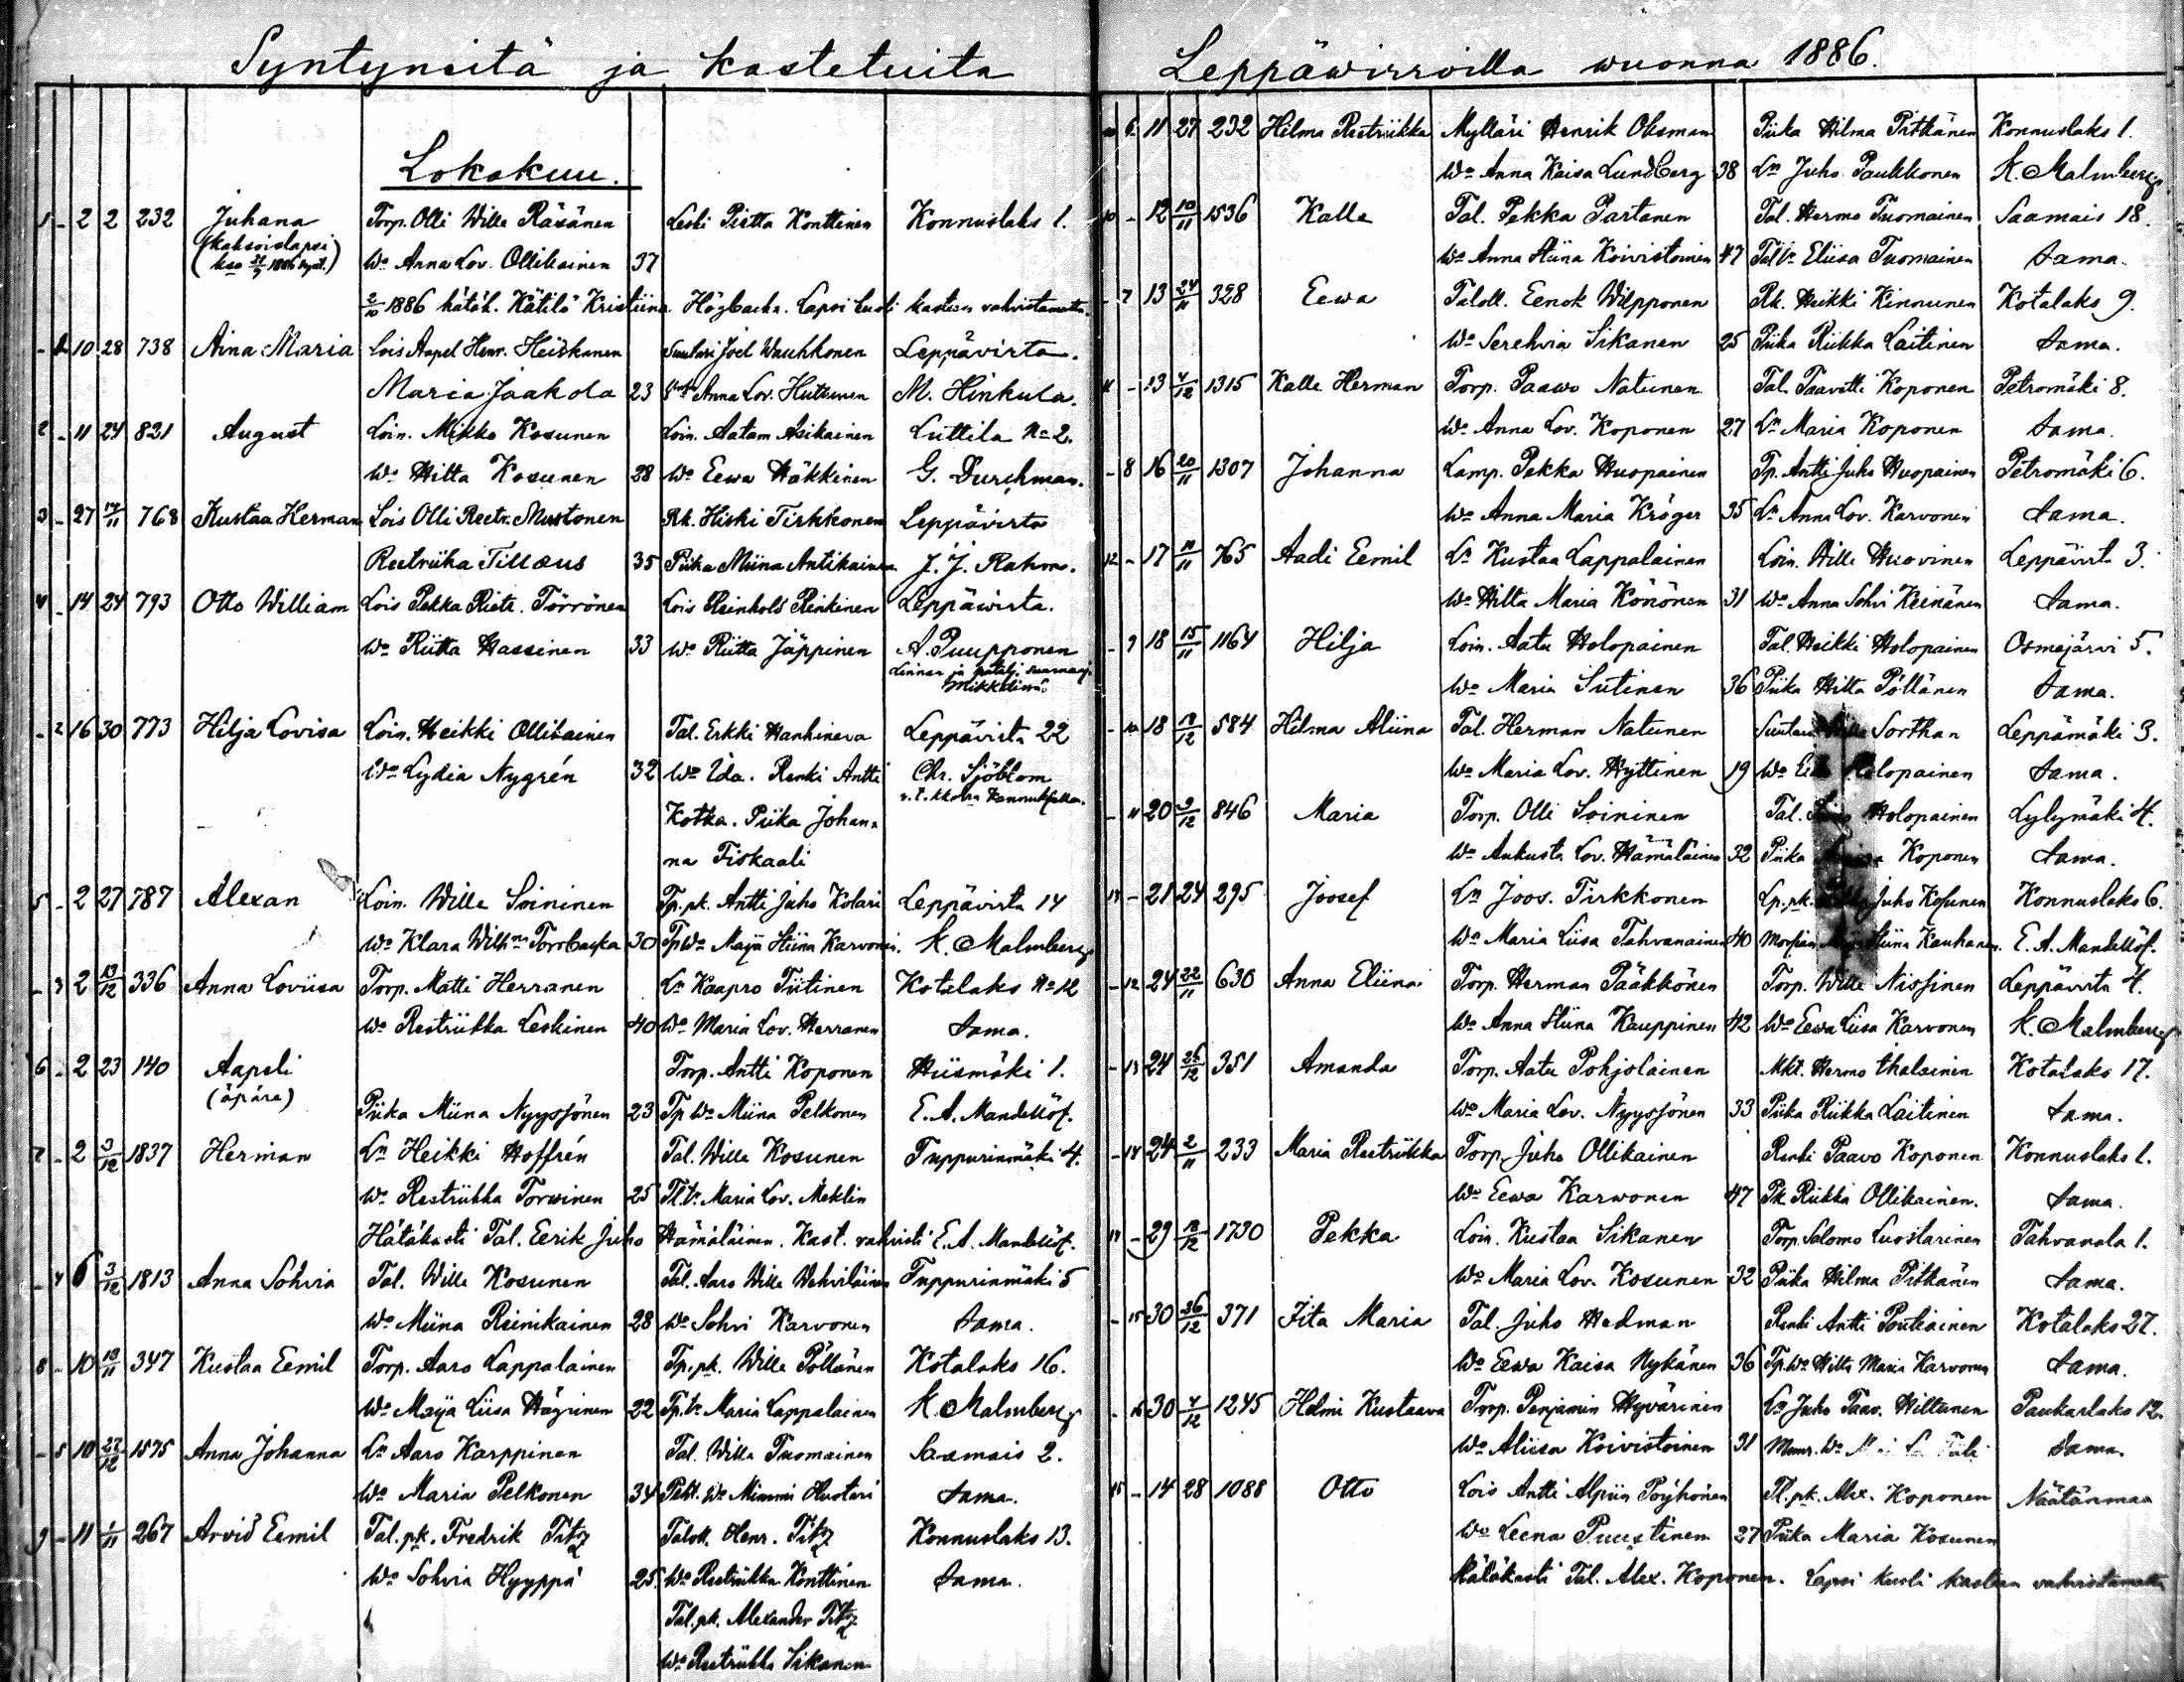 Syntyneitä ja kastetuita
Lokakuu.
1 - 2 2 232 Juhana Torp. Olli Wille Räsänen Leski Pietta Konttinen Konnuslaks 1.
(kaksoislapsi) Wo Anna Lov. Ollikainen 37
2/10 1886 hätäk. Kätilö Kristiina Högbacka. Lapsi kuoli kasteen vahvistamatta.
10 28 738 Aina Maria Lois Aapel Henr. Heiskanen Suutari Joel Wauhkonen Leppävirta.
Maria Jaakola 23 Anna Lov. Huttunen M. Hinkula.
2 - 11 24 821 August Loin. Mikko Kosunen Loin. Aatam Asikainen Luttila No 2.
Wo Hilta Kosunen 28 Wo Eewa Häkkinen G. Durchman.
3 - 27 14/11 768 Kustaa Herman Lois Olli Reetr. Mustonen Rk. Hiski Tirkkonen Leppävirta
Reetriika Tillaus 35 Piika Miina Antikainen J. J. Rahm.
4 - 14 24 793 Otto William Lois Pekka Rietr. Törrönen Lois Reinhold Renkinen Leppäwirta.
Wo Riitta Hassinen 33 Wo Riitta Jäppinen A. Puupponen
Linnan ja
Mikkelissä
- 2 16 30 773 Hilja Lovisa Loin. Heikki Ollikainen Tal. Erkki Hanhineva Leppävirta 22
Wo Lydia Nygrén 32 Wo Ida. Renki Antti Chr. Sjöblom
Kotka. Piika Johan-
na Fiskaali
5 - 2 27 787 Alexan Loin. Wille Soininen Tp. pk. Antti Juho Kolari Leppävirta 14
Wo Klara Wilhna Torrbacka 30 Tp Wo Maija Stiina Karvonen. K. Malmberg
- 3 2 19/12 336 Anna Loviisa Torp. Matti Herranen Ln Kaapro Tiitinen Kotalaks No 12
Wo Reetriikka Leskinen 40 Wo Maria Lov. Herranen Sama.
6 - 2 23 140 Aapeli Torp. Antti Koponen Hiismäki 1.
(äpärä) Piika Miina Nyyssönen 23 Tp Wo Miina Pelkonen E. A. Mandellöf.
7 - 2 3/12 1837 Herman Ln Heikki Hoffrén Tal. Wille Kosunen Tuppurinmäki 4.
Wo Reetriikka Torvinen 25 Tl. V. Maria Lov. Meklin
Hätäkasti Tal. Eerik Juho Hämäläinen. Kast. vahvisti E. A. Mandellöf.
- 4 6 3/12 1813 Anna Sohvia Tal. Wille Kosunen Tal. Aaro Wille Wehviläinen Tuppurinmäki 5
Wo Miina Reinikainen 28 Wo Sohvi Karvonen Sama.
8 - 10 13/11 347 Kustaa Eemil Torp. Aaro Lappalainen Tp. pk. Wille Pöllänen Kotalaks 16.
Wo Maija Liisa Hägrinen 22 Tp. V. Maria Lappalainen K. Malmberg
- 5 10 27/12 1575 Anna Johanna Ln Aaro Karppinen Tal. Wille Tuomainen Saamais 2.
Wo Maria Pelkonen 34 Wo Mimmi Huotari Sama.
9 - 11 1/11 267 Arvid Eemil Tal. pk. Fredrik Titz Taloll. Henr. Titz Konnuslaks 13.
Wo Sohvia Hyyppä 25 Wo Reetriikka Konttinen Sama.
Tal. pk. Alexander Titz
Wo Reetriikka Sikanen
Leppäwirroilla wuonna 1886.
6 11 27 232 Hilma Reetriikka Mylläri Henrik Oksman Piika Hilma Pitkänen Konnuslaks 1.
Wo Anna Kaisa Lundberg 38 Ln Juho Paukkonen K. Malmberg
10 - 12 10/11 1536 Kalle Tal. Pekka Partanen Tal. Hermo Tuomainen Saamais 18.
Wo Anna Stiina Koivistoinen 47 Tal V. Eliisa Tuomainen Sama.
- 7 13 24/11 328 Eewa Taloll. Eenok Wilpponen Rk. Heikki Kinnunen Kotalaks 9.
Wo Serehvia Sikanen 25 Piika Riikka Laitinen Sama.
11 - 13 4/12 1315 Kalle Herman Torp. Paawo Natunen Tal. Taavetti Koponen Petromäki 8.
Wo Anna Lov. Koponen 27 Ln Maria Koponen Sama.
- 8 16 20/11 1307 Johanna Lamp. Pekka Huopainen Tp. Antti Juho Huopainen Petromäki 6.
Wo Anna Maria Kröger 35 Ln Anna Lov. Karvonen Sama.
12 - 17 11/11 765 Aadi Eemil Ln Kustaa Lappalainen Loin. Wille Huovinen Leppävirta 3.
Wo Hilta Maria Könönen 31 Wo Anna Sohvi Keinänen Sama.
- 9 18 15/11 1164 Hilja Loin. Aatu Holopainen Tal. Heikki Holopainen Osmajärvi 5.
Wo Maria Sutinen 36 Piika Hilta Pöllänen Sama.
- 10 18 18/12 584 Helma Aliina Tal. Herman Natunen Suutari Sorthan Leppämäki 3.
Wo Maria Lov. Hyttinen 19 Wo Holopainen Sama.
- 11 20 3/12 846 Maria Torp. Olli Soininen Tal. Holopainen Lylymäki 4.
Wo Aukusta Lov. Hämäläinen 32 Piika Koponen Sama.
13 - 21 24 295 Joosef Ln Joos. Tirkkonen Lp. pk. Juho Kosunen Konnuslaks 6.
Wo Maria Liisa Tahvanainen 40 Morsian Stiina Kauhanen. E. A. Mandellöf.
- 12 24 22/11 630 Anna Eliina Torp. Herman Pääkkönen Torp. Wille Nissinen Leppävirta 4.
Wo Anna Stiina Kauppinen 42 Wo Eewa Liisa Karvonen K. Malmberg
- 13 24 26/12 351 Amanda Torp. Aatu Pohjolainen Mkt. Hermo Ihalainen Kotalaks 17.
Wo Maria Lov. Nyyssönen 33 Piika Riikka Laitinen Sama.
- 14 24 2/11 233 Maria Reetriikka Torp. Juho Ollikainen Renki Paavo Koponen Konnuslaks 1.
Wo Eewa Karwonen 47 Pk Riikka Ollikainen. Sama.
14 - 29 18/12 1730 Pekka Loin. Kustaa Sikanen Torp. Salomo Luostarinen Tahvanala 1.
Wo Maria Lov. Kosunen 32 Piika Hilma Pitkänen Sama.
- 15 30 26/12 371 Iita Maria Tal. Juho Hedman Renki Antti Poutiainen Kotalaks 27.
Wo Eewa Kaisa Nykänen 36 Tp. Wo Hilta Maria Karvonen Sama.
- 16 30 4/12 1245 Helmi Kustaava Torp. Penjamin Hyvärinen Ln Juho Taav. Hiltunen Paukarlaks 12.
Wo Aliisa Koivistoinen 31 Muur. Wo Sama.
15 - 14 28 1088 Otto Lois Antti Alpiin Pöyhönen Tl. pk. Alex. Koponen Näätänmaa
Wo Leena Puustinen 27 Piika Maria Kosunen
Hätäkasti Tal. Alex. Koponen. Lapsi kuoli kasteen vahvistamatta